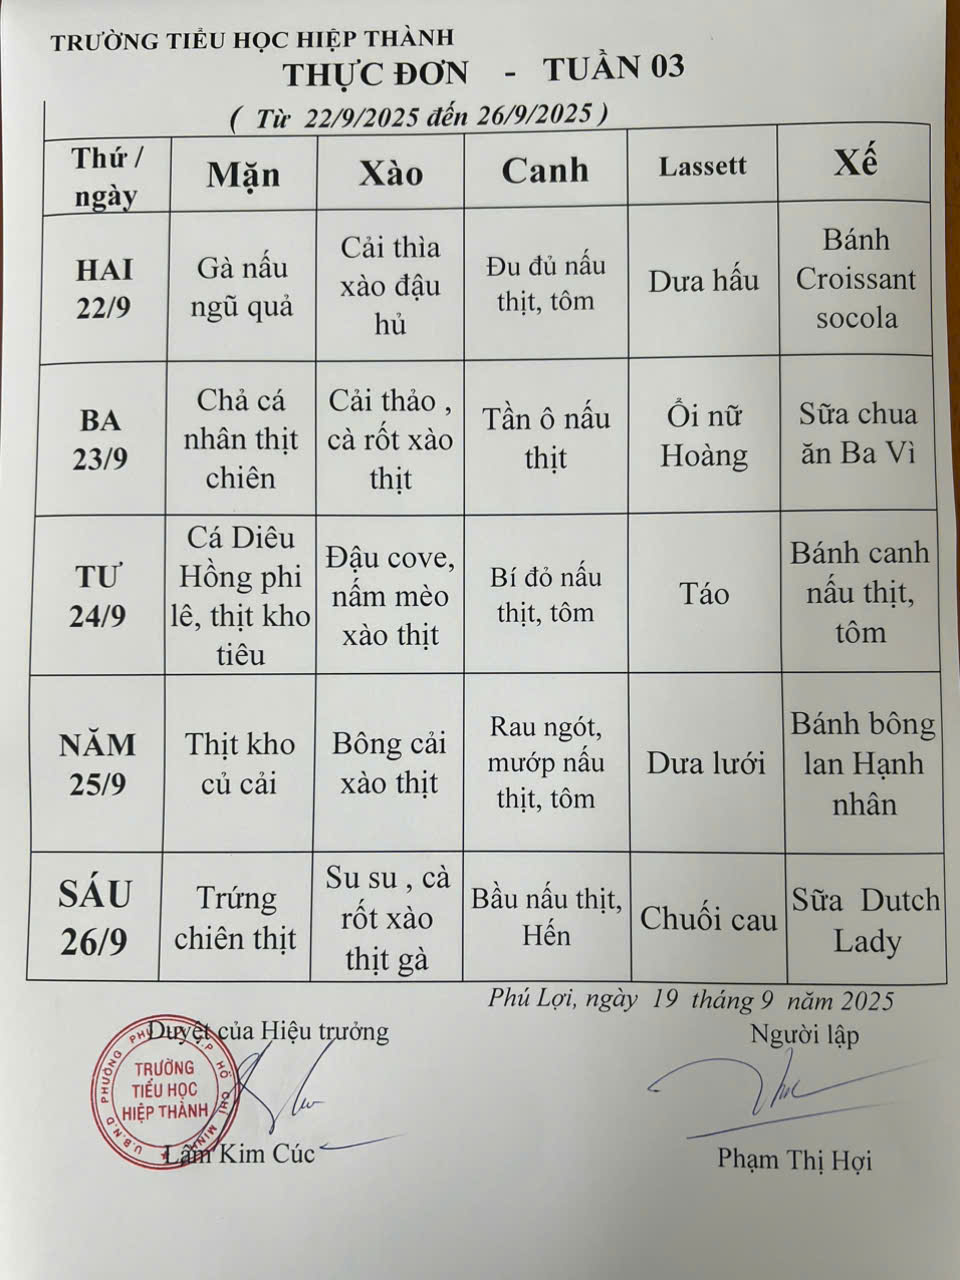 TRƯỜNG TIỂU HỌC HIỆP THÀNH
THỰC ĐƠN - TUẦN 03
( Từ 22/9/2025 đến 26/9/2025 )
Thứ / ngày Mặn Xào Canh Lassett Xế
HAI 22/9 Gà nấu ngũ quả Cải thìa xào đậu hủ Đu đủ nấu thịt, tôm Dưa hấu Bánh Croissant socola
BA 23/9 Chả cá nhân thịt chiên Cải thảo , cà rốt xào thịt Tần ô nấu thịt Ổi nữ Hoàng Sữa chua ăn Ba Vì
TƯ 24/9 Cá Diêu Hồng phi lê, thịt kho tiêu Đậu cove, nấm mèo xào thịt Bí đỏ nấu thịt, tôm Táo Bánh canh nấu thịt, tôm
NĂM 25/9 Thịt kho củ cải Bông cải xào thịt Rau ngót, mướp nấu thịt, tôm Dưa lưới Bánh bông lan Hạnh nhân
SÁU 26/9 Trứng chiên thịt Su su , cà rốt xào thịt gà Bầu nấu thịt, Hến Chuối cau Sữa Dutch Lady
Phú Lợi, ngày 19 tháng 9 năm 2025
Duyệt của Hiệu trưởng Người lập
TRƯỜNG
TIỂU HỌC
HIỆP THÀNH
Lâm Kim Cúc Phạm Thị Hợi